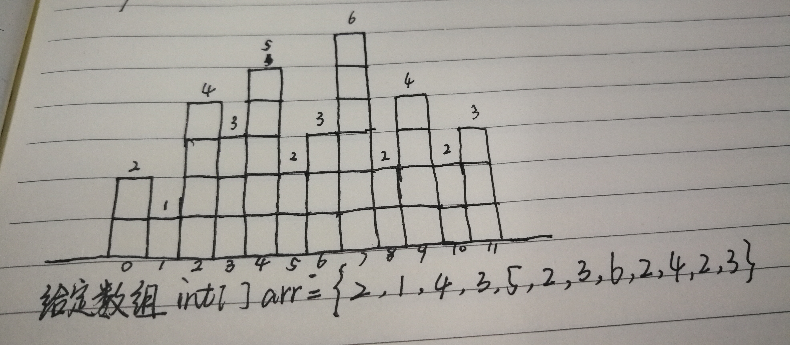 6
5
4
4
3
3
3
2
2
2
2
1
0 1 2 3 4 5 6 7 8 9 10 11
给定数组 int[] arr = {2,1,4,3,5,2,3,6,2,4,2,3}